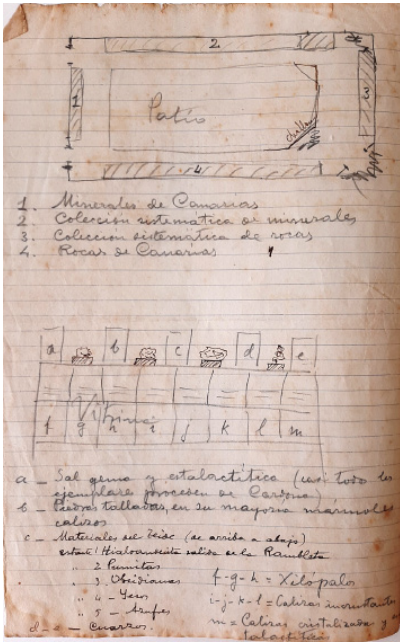 2
1
Patio
3
4
1. Minerales de Canarias
2. Colección sistematica de minerales
3. Colección sistematica de rocas
4. Rocas de Canarias
a b c d e
f g h i j k l m
a - Sal gema y estalactitica (casi todo los
ejemplares proceden de Cardona)
b - Piedras talladas, en su mayoria marmoles
calizos
c - Materiales del Teide (de arriba a abajo)
1 Hialoandesita salida de la Rambleta
" 2 Pumitas
" 3 Obsidianas
" 4 - Yesos
" 5 - Azufres
d - e - Cuarzos.
f-g-h = Xilopalos
i-j-k-l = Calizas incrustantes
m = Caliza cristalizada y